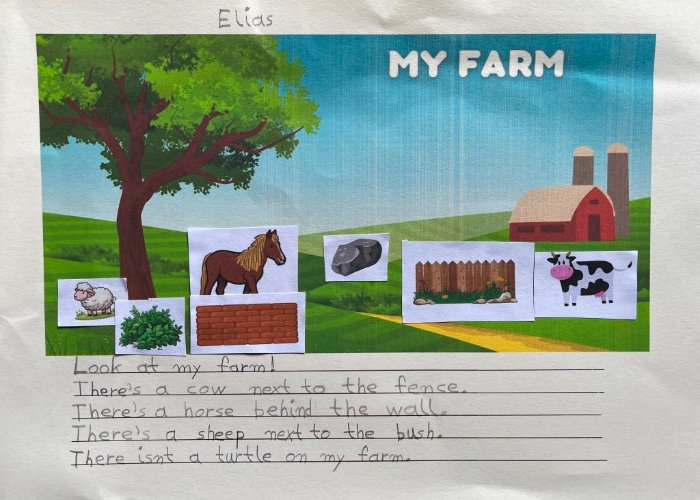 Elias
MY FARM
Look at my farm!
There's a cow next to the fence.
There's a horse behind the wall.
There's a sheep next to the bush.
There isnt a turtle on my farm.